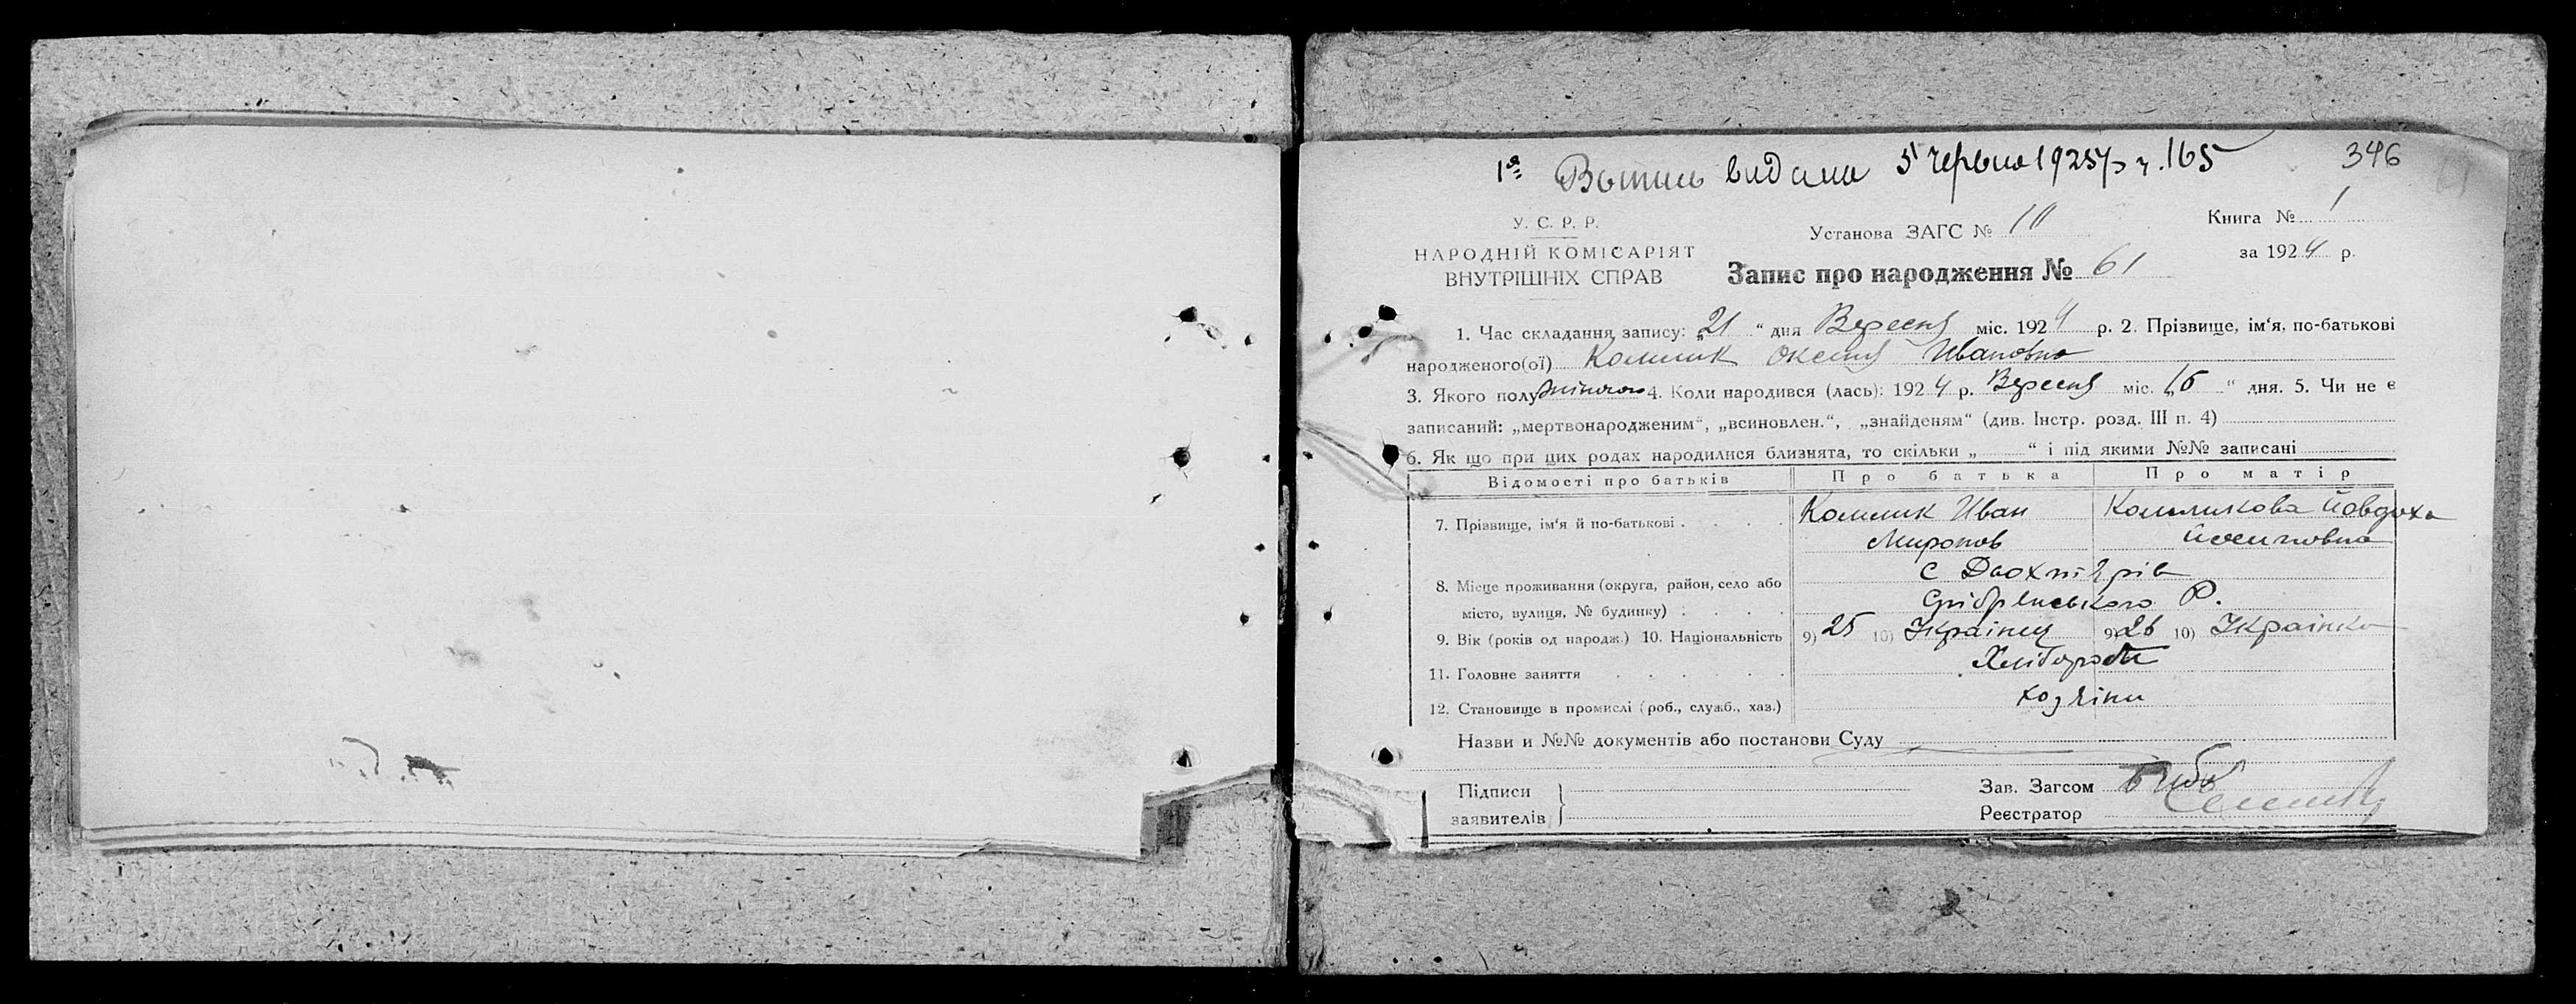 1ª Выпись видана 5 червня 1925 р ч. 165
346
У. С. Р. Р.
НАРОДНІЙ КОМІСАРІЯТ
ВНУТРІШНІХ СПРАВ
Установа ЗАГС № 10
Книга № 1
за 1924 р.
Запис про народження № 61
1. Час складання запису: „21“ дня Вересня міс. 1924 р. 2. Прізвище, ім‘я, по-батькові
народженого(ої) Комлик Оксина Ивановна
3. Якого полу жіночого 4. Коли народився (лась): 1924 р. Вересня міс. „15“ дня. 5. Чи не є
записаний: „мертвонародженим“, „всиновлен.“, „знайденям“ (див. Інстр. розд. III п. 4)
6. Як що при цих родах народилися близнята, то скільки „ “ і під якими №№ записані
Відомості про батьків Про батька Про матір
7. Прізвище, ім‘я й по-батькові . . . . Комлик Иван Комликова Йовдоха
Миронов Йосиповна
8. Місце проживання (округа, район, село або с Двохтирів
місто, вулиця, № будинку) . . . . Срібрянського Р.
9. Вік (років од народж.) 10. Національність 9) 25 10) Українец 9) 26 10) Українка
11. Головне заняття . . . . . . Хлібороби
12. Становище в промислі (роб., служб., хаз.) хозяїни
Назви и №№ документів або постанови Суду
Підписи
заявителів
Зав. Загсом
Реєстратор